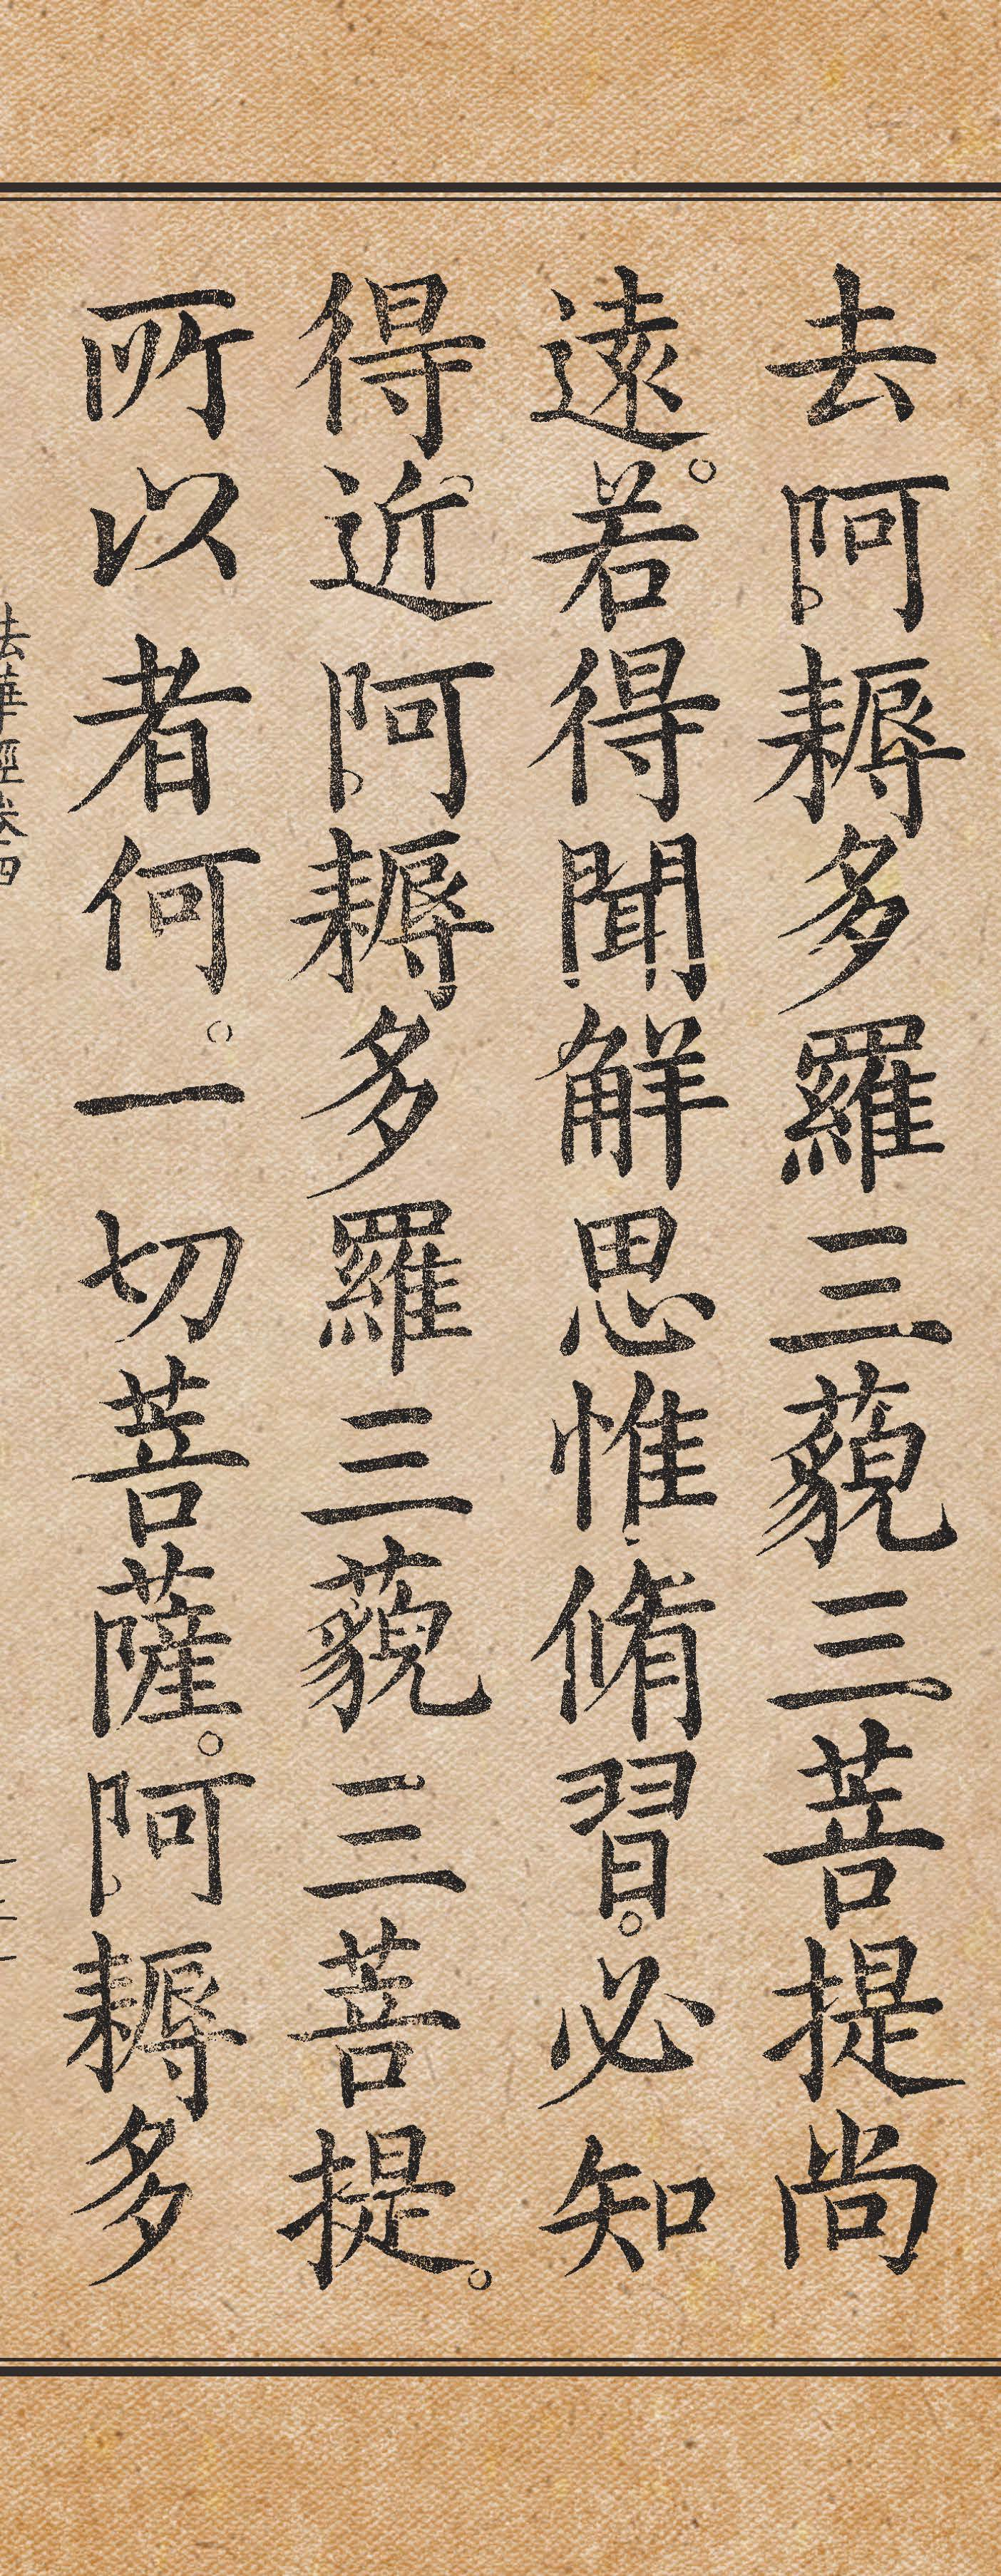 去阿耨多羅三藐三菩提尚
遠。若得聞解思惟脩習。必知
得近阿耨多羅三藐三菩提。
所以者何。一切菩薩。阿耨多
法華經卷四